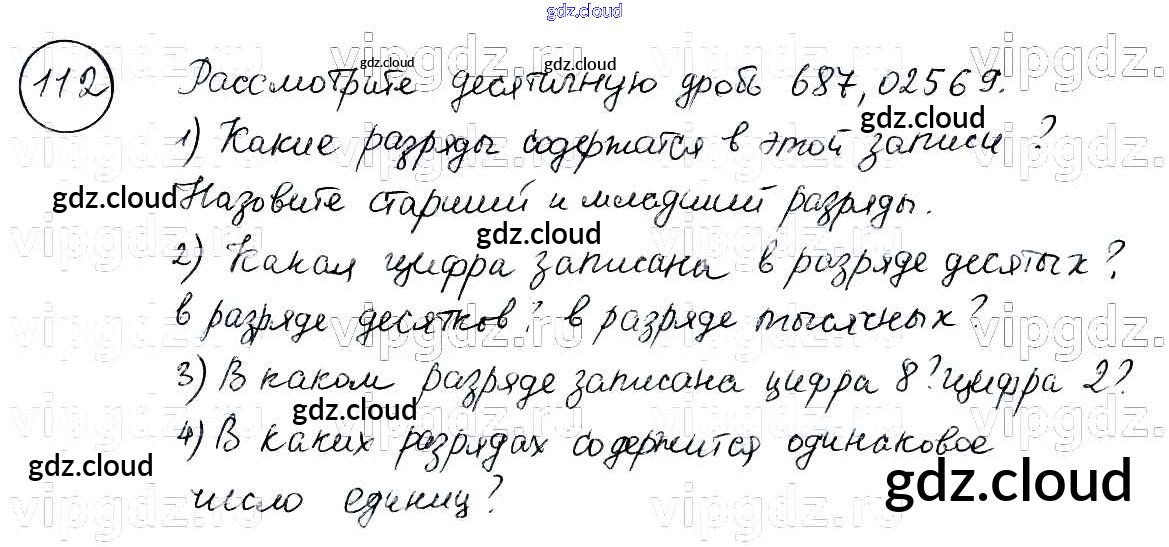 gdz.cloud
112 Рассмотрите десятичную дробь 687,02569.
1) Какие разряды содержатся в этой записи?
Назовите старший и младший разряды.
2) Какая цифра записана в разряде десятых?
в разряде десятков? в разряде тысячных?
3) В каком разряде записана цифра 8? цифра 2?
4) В каких разрядах содержится одинаковое
число единиц?
gdz.cloud
gdz.cloud
gdz.cloud
gdz.cloud
gdz.cloud
gdz.cloud
gdz.cloud
vipgdz.ru